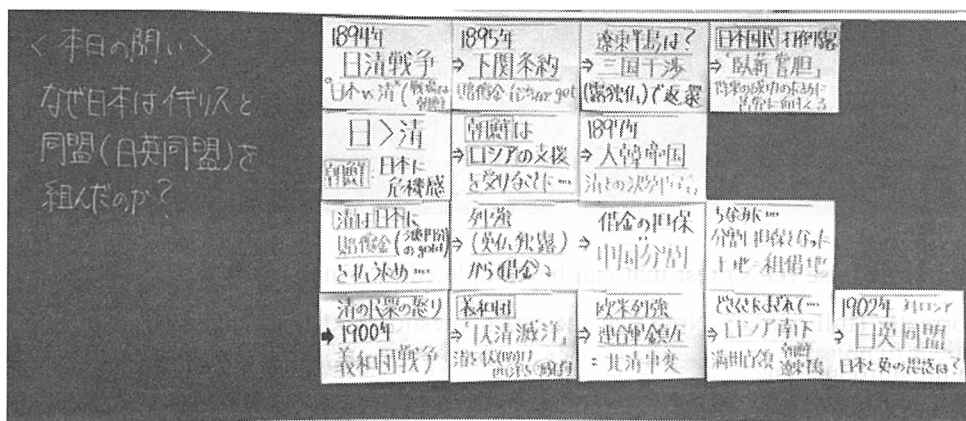 <本日の問い>
なぜ日本はイギリスと
同盟(日英同盟)を
組んだのか?
1894年
日清戦争
日本vs清(戦場は朝鮮)
⇒
1895年
下関条約
賠償金 台湾 get
⇒
遼東半島は?
三国干渉
(露独仏)で返還
⇒
日本国民 打倒露
「臥薪嘗胆」
日>清
朝鮮:日本に
危機感
⇒
朝鮮は
ロシアの支援
を受けることに…
⇒
1897年
大韓帝国
清は日本に
賠償金
を払うため…
⇒
列強
(英仏独露)
から借金
⇒
借金の担保
中国分割
ちなみに…
分割担保となった
土地=租借地
清の民衆の怒り
➡ 1900年
義和団戦争
⇒
義和団
「扶清滅洋」
⇒
欧米列強
連合軍鎮圧
=北清事変
⇒
どさくさまぎれて…
ロシア南下
満州占領
⇒
1902年 対ロシア
日英同盟
日本と英の思惑は?